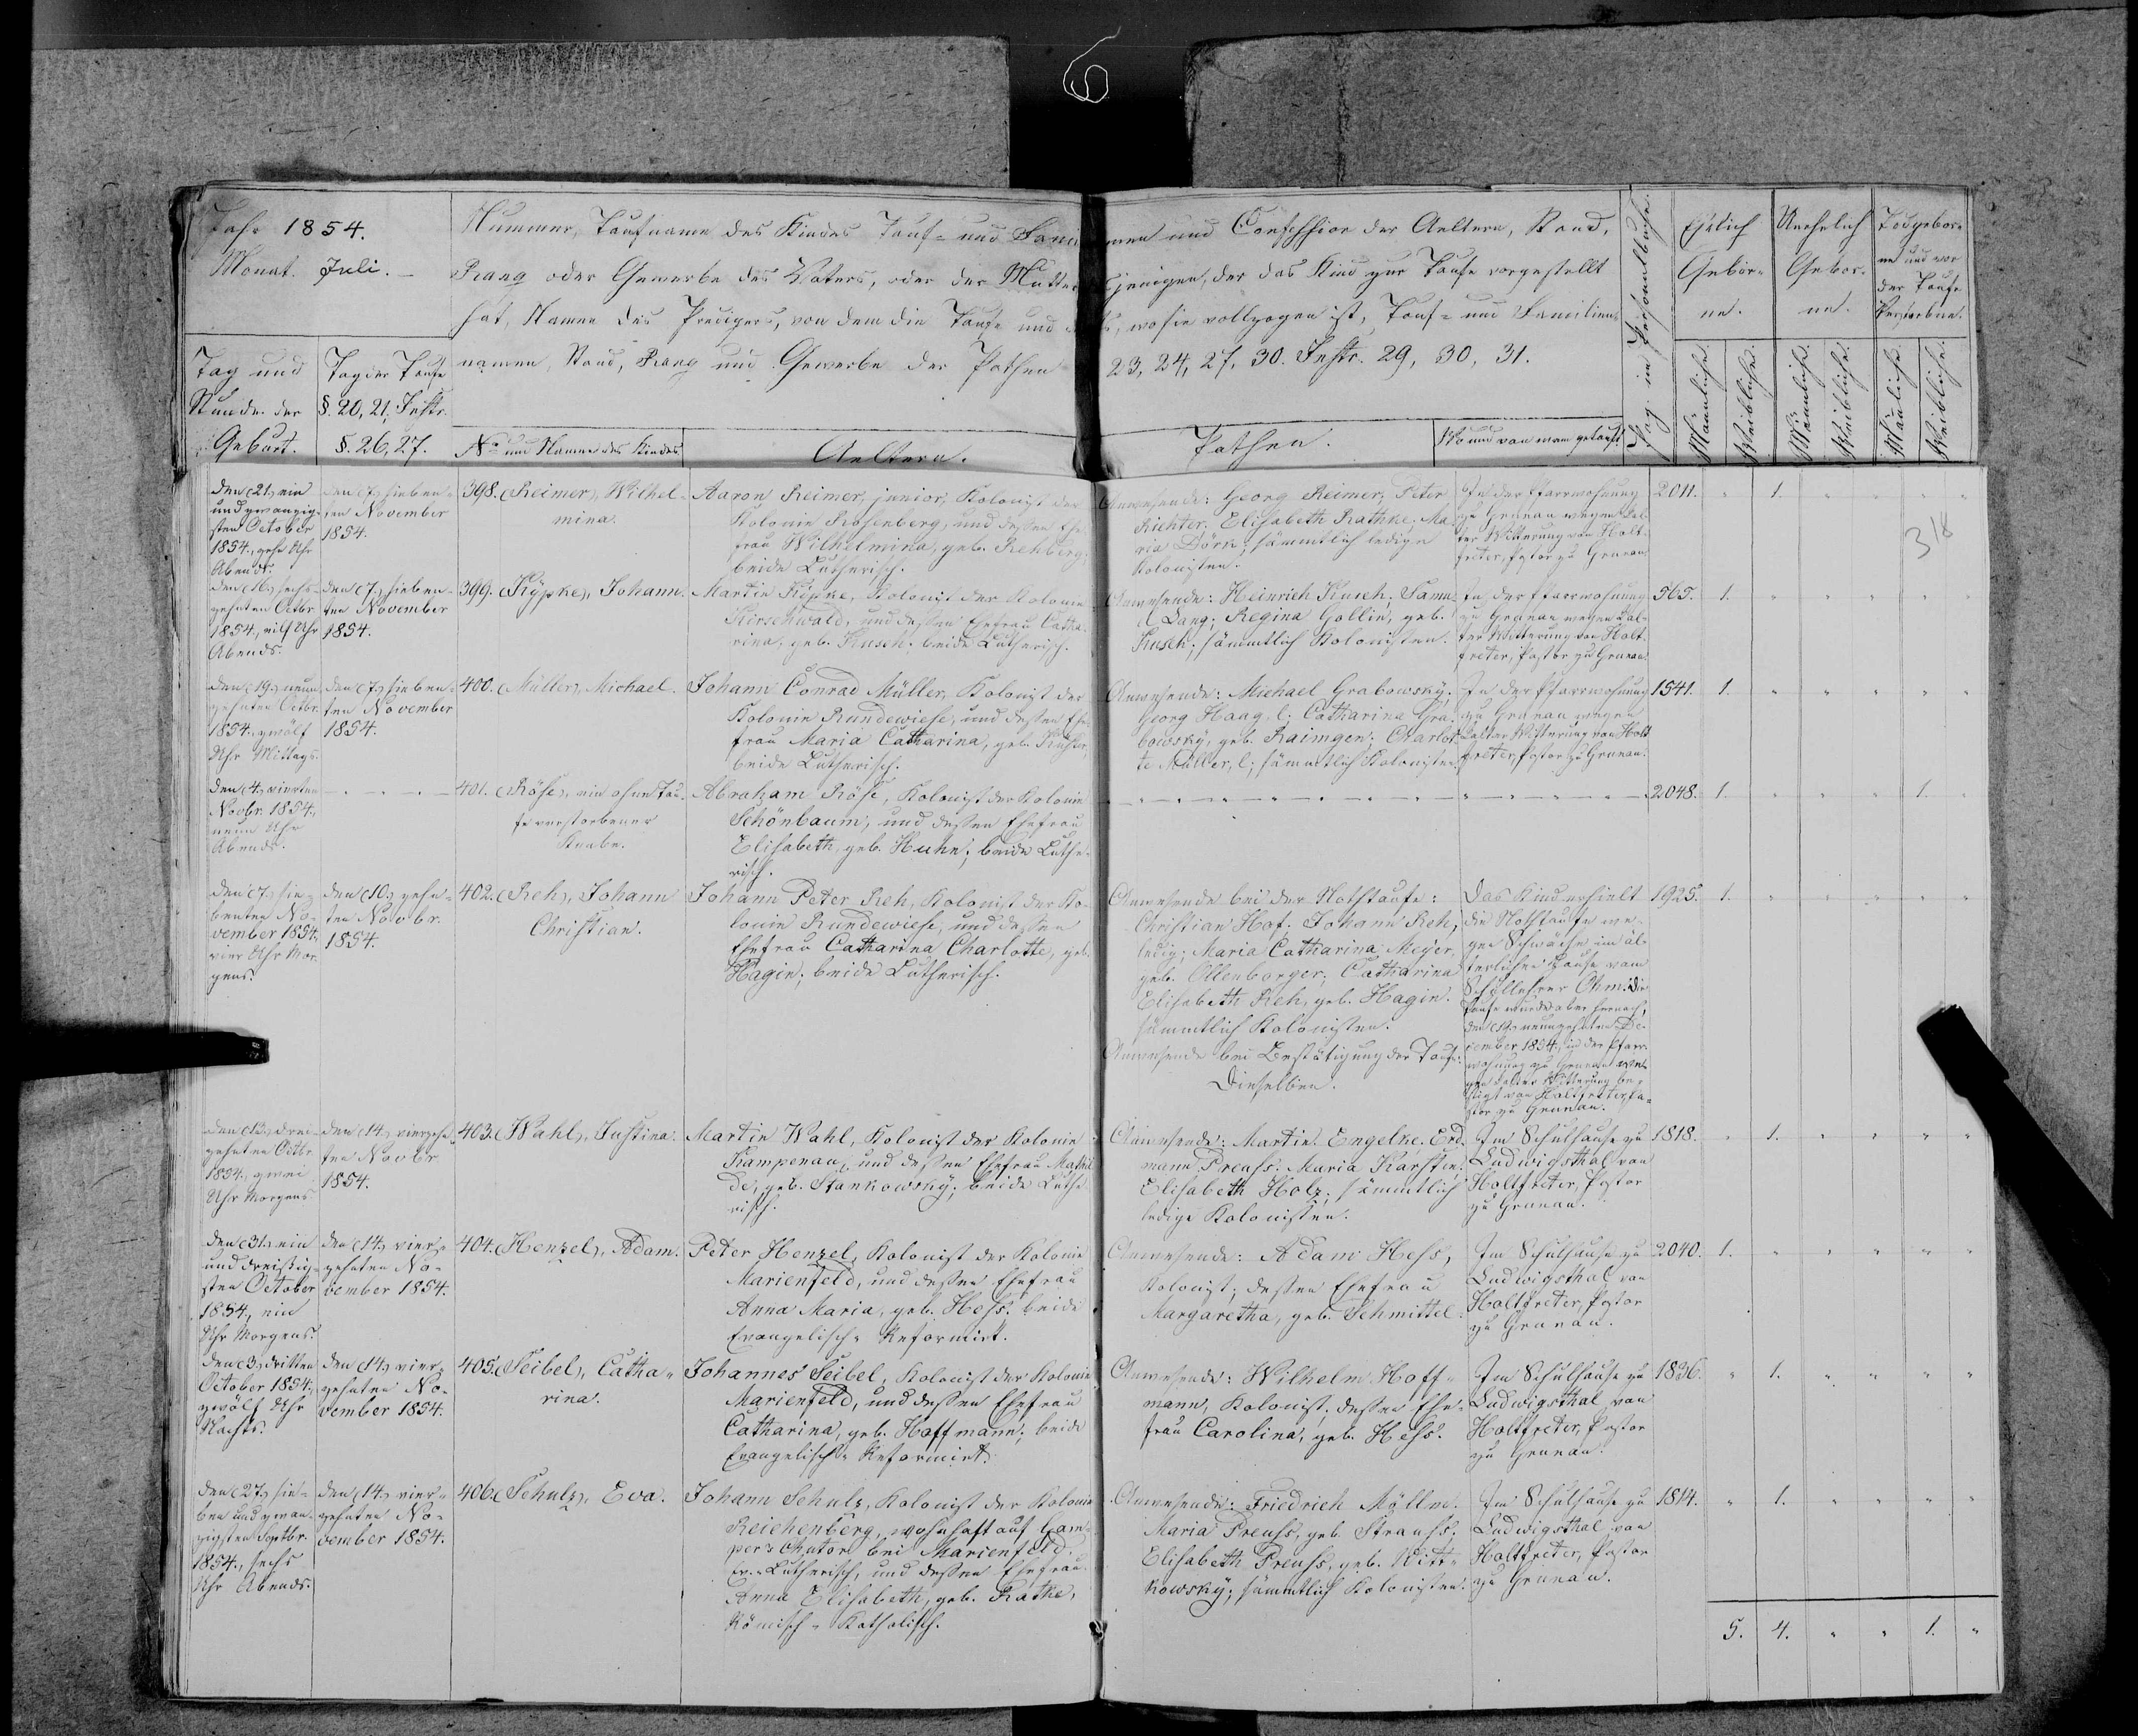 6
Jahr 1854.
Monat. Juli. –
Nummer, Taufname des Kindes Tauf- und Fami
Rang oder Gewerbe des Vaters, oder der Mutter
hat, Namen des Predigers, von dem die Taufe und
namen, Stand, Rang und Gewerbe der Pathen
men und Confession der Aeltern, Stand,
jenigen, der das Kind zur Taufe vorgestellt
wo sie vollzogen ist, Tauf- und Familien
23, 24, 27, 30. Instr. 29, 30, 31.
Tag und
Stunde der
Geburt.
Tag der Taufe
§. 20, 21, Instr.
§. 26, 27.
No und Name des Kindes
Aeltern.
Pathen.
Wo und von wem getauft
Pag. im Personalbuche.
Ehelich
Gebor-
ne.
Unehelich
Gebor-
ne.
Todgebor-
ne und vor
der Taufe
Verstorbene.
Männliche.
Weibliche.
Männliche.
Weibliche.
Männliche.
Weibliche.
318
den (21.) ein
und zwanzig-
sten October
1854., zehn Uhr
Abends.
den (7.) sieben-
ten November
1854.
398. (Reimer), Wilhel-
mina.
Aaron Reimer, junior, Kolonist der
Kolonie Rosenberg, und dessen Ehe-
frau Wilhelmina, geb. Rehberg,
beide Lutherisch.
Anwesende: Georg Reimer, Peter
Richter. Elisabeth Rathke, Ma-
ria Dörk; sämmtlich ledige
Kolonisten.
In der Pfarrwohnung
zu Grunau wegen kal-
ter Witterung von Holt-
freter, Pastor zu Grunau
2011. " 1. " " " "
den (16.) sechs-
zehnten Octbr
1854., eilf Uhr
Abends.
den (7.) sieben-
ten November
1854.
399. (Kypke), Johann.
Martin Kypke, Kolonist der Kolonie
Kirschwald, und dessen Ehefrau Catha-
rina, geb. Kusch. beide Lutherisch.
Anwesende: Heinrich Kusch; Samu-
el Dang; Regina Gollin, geb.
Kusch; sämmtlich Kolonisten.
In der Pfarrwohnung
zu Grunau wegen kal-
ter Witterung von Holt-
freter, Pastor zu Grunau.
565. 1. " " " " "
den (19.) neun-
zehnten Octbr.
1854., zwölf
Uhr Mittags.
den (7.) sieben-
ten November
1854.
400. (Müller), Michael.
Johann Conrad Müller, Kolonist der
Kolonie Rundewiese, und dessen Ehe-
frau Maria Catharina, geb.
beide Lutherisch.
Anwesende: Michael Grabowsky;
Georg Haag, l; Catharina Gra-
bowsky, geb. Raimgen; Charlot-
te Müller, l; sämmtlich Kolonisten.
In der Pfarrwohnung
zu Grunau wegen
kalter Witterung von Holt-
freter, Pastor zu Grunau.
1541. 1. " " " " "
den (4.) vierten
Novbr. 1854.,
neun Uhr
Abends.
401. (Röse), ein ohne Tau-
fe verstorbener
Knabe.
Abraham Röse, Kolonist der Kolonie
Schönbaum, und dessen Ehefrau
Elisabeth, geb. Huhn; beide Luthe-
risch.
2048. 1. " " " 1. "
den (7.) sie-
benten No-
vember 1854,
vier Uhr Mor-
gens.
den (10.) zehn-
ten Novbr.
1854.
402. (Reh), Johann
Christian.
Johann Peter Reh, Kolonist der Ko-
lonie Rundewiese, und dessen
Ehefrau Catharina Charlotte, geb.
Hagin; beide Lutherisch.
Anwesende bei der Nothtaufe:
Christian Hof; Johann Reh,
ledig; Maria Catharina Meyer,
geb. Ollenborger; Catharina
Elisabeth Reh, geb. Hagin.
sämmtlich Kolonisten.
Anwesende bei Bestätigung der Taufe:
Dieselben.
Das Kind erhielt
die Nothtaufe we-
gen Schwäche im äl-
terlichen Hause vom
Schullehrer Ohm. Die
Taufe wurde aber hernach,
den (19.) neunzehnten De-
cember 1854., in der Pfarr-
wohnung zu Grunau we-
gen kalter Witterung be-
stätigt von Holtfreter, Pa-
stor zu Grunau.
1925. 1. " " " " "
den (13.) drei-
zehnten Octbr.
1854., zwei
Uhr Morgens
den (14.) vierzehn-
ten Novbr
1854.
403. (Wahl), Justina.
Martin Wahl, Kolonist der Kolonie
Kampenau, und dessen Ehefrau Mathil-
de, geb. Stankowsky; beide Luthe-
risch.
Anwesende: Martin Engelke. Erd-
mann Preuss. Maria Karsten.
Elisabeth Holz; sämmtlich
ledige Kolonisten.
Im Schulhause zu
Ludwigsthal von
Holtfreter, Pastor
zu Grunau.
1818. " 1. " " " "
den (31.) ein
und dreissig-
sten October
1854., ein
Uhr Morgens.
den (14.) vier-
zehnten No-
vember 1854.
404. (Henzel), Adam.
Peter Henzel, Kolonist der Kolonie
Marienfeld, und dessen Ehefrau
Anna Maria, geb. Hess. beide
Evangelisch-Reformirt.
Anwesende: Adam Hess,
Kolonist; dessen Ehefrau
Margaretha, geb. Schmittel.
Im Schulhause zu
Ludwigsthal von
Holtfreter, Pastor
zu Grunau.
2040. 1. " " " " "
den (3.) dritten
October 1854.,
zwölf Uhr
Nachts.
den (14.) vier-
zehnten No-
vember 1854.
405. (Seibel), Catha-
rina.
Johannes Seibel, Kolonist der Kolonie
Marienfeld, und dessen Ehefrau
Catharina, geb. Hoffmann; beide
Evangelisch-Reformirt.
Anwesende: Wilhelm Hoff-
mann, Kolonist, dessen Ehe-
frau Carolina, geb. Hess.
Im Schulhause zu
Ludwigsthal von
Holtfreter, Pastor
zu Grunau.
1836. " 1. " " " "
den (27.) sie-
ben und zwan-
zigsten Septbr.
1854., sechs
Uhr Abends.
den (14.) vier-
zehnten No-
vember 1854.
406. (Schulz), Eva.
Johann Schulz, Kolonist der Kolonie
Reichenberg, wohnhaft auf Cam-
per's Chutor bei Marienfeld.
Ev.-Lutherisch, und dessen Ehefrau
Anna Elisabeth, geb. Rathke,
Römisch-Katholisch.
Anwesende: Friedrich Müller.
Maria Preuss, geb. Strauss.
Elisabeth Preuss, geb. Witt-
kowsky; sämmtlich Kolonisten.
Im Schulhause zu
Ludwigsthal von
Holtfreter, Pastor
zu Grunau.
1814. " 1. " " " "
5. 4. " " 1. "